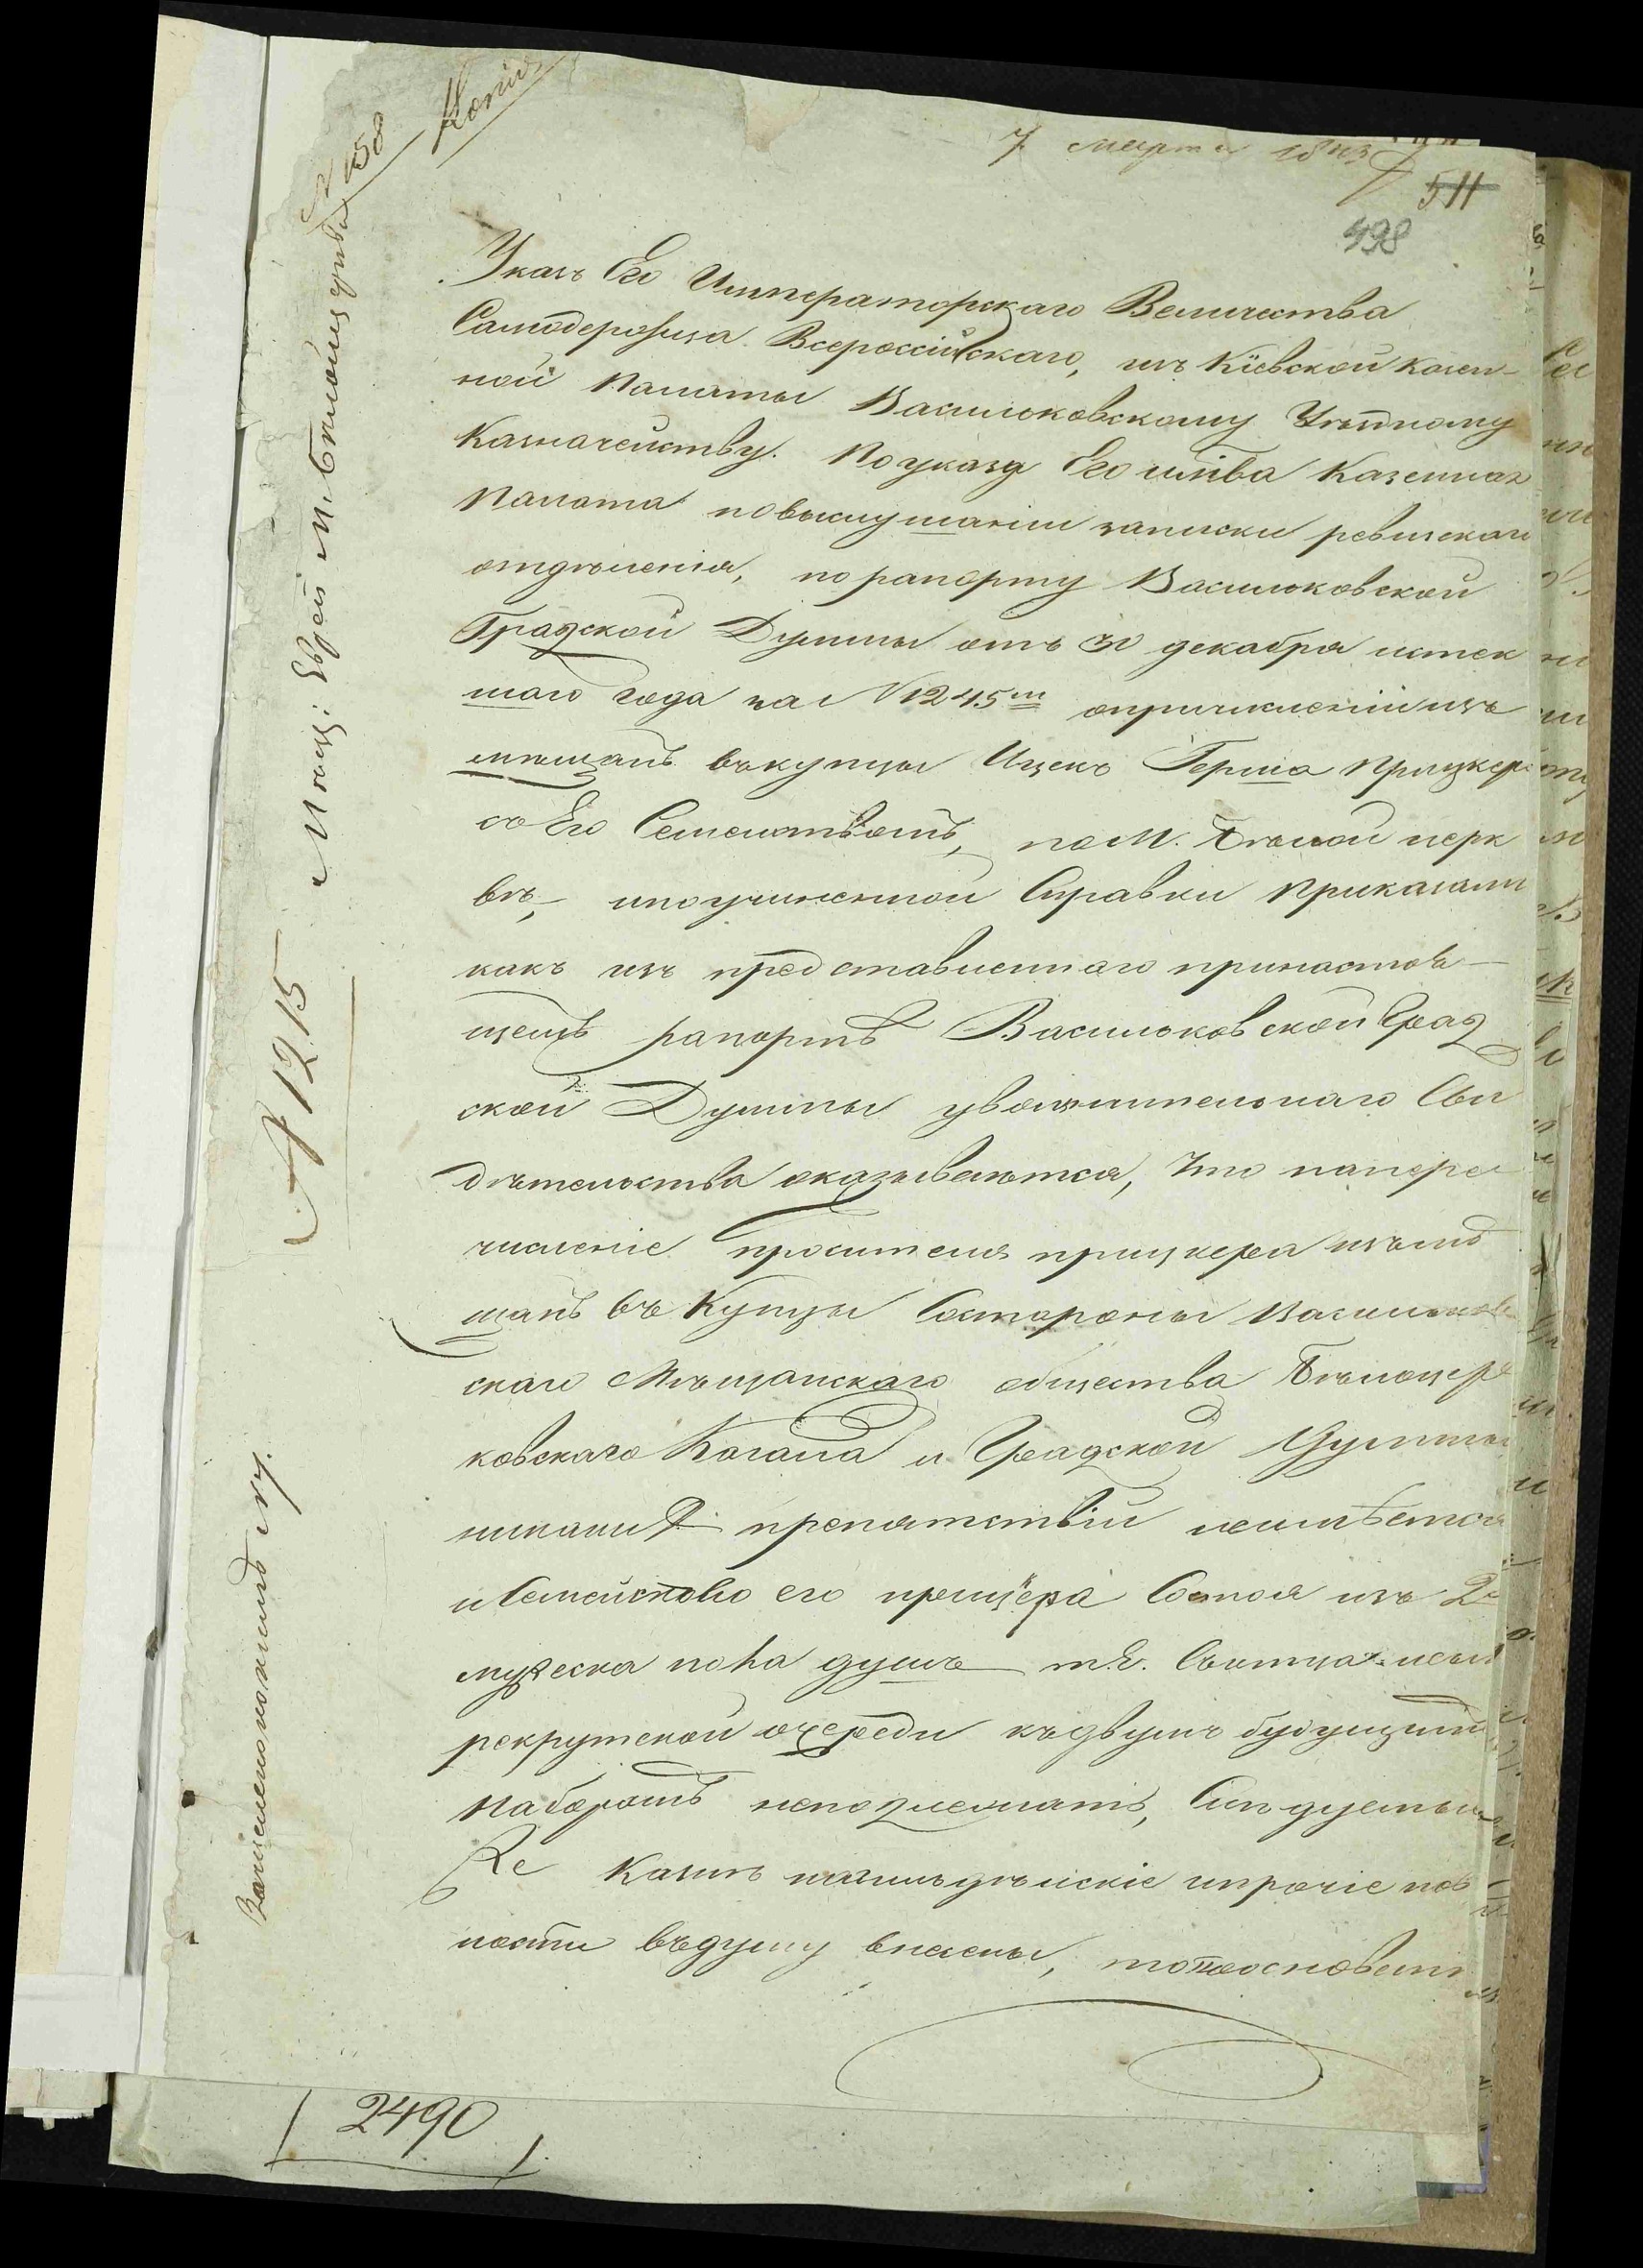 Копія
7 марта 1843
511
498
№ 158
Мѣщ: Еврей М. Бѣлой церкви
№ 1215
Указъ Его Императорскаго Величества
Самодержца Всероссійскаго, изъ Кіевской Казен-
ной Палаты Васильковскому Уѣздному
Казначейству. По указу Его ИМПва Казенная
Палата повыслушаніи записки ревизскаго
отдѣленія, по рапорту Васильковской
Градской Думы отъ 30 декабря истек
шаго года за №1245м опричисленіи изъ
мѣщанъ въ купцы Ицекъ Герша Прицкера
со Его Семействомъ, по М. Бѣлой церк
вѣ, и по учиненной Справки Приказали
какъ изъ представленнаго при настоя-
щемъ рапортѣ Васильковской Град
ской Думы увольнительнаго Сви
дѣтельства оказывается, что на пере
численіе просителя прицкера изъ мѣ
щанъ въ Купцы Состороны Васильков
скаго Мѣщанскаго общества Бѣлоцер
ковскаго Кагала и Градской Думы
никакихъ препятствій неимѣется
и Семейство его прицкера Состоя изъ 2х
мужеска пола душъ т.е.
рекрутской очереди къ двумъ будущимъ
Наборомъ неподлежатъ, Слѣдуемыя
Же Казнѣ и прочіе пов
ности въ думу внесены, то на основаніи
2490